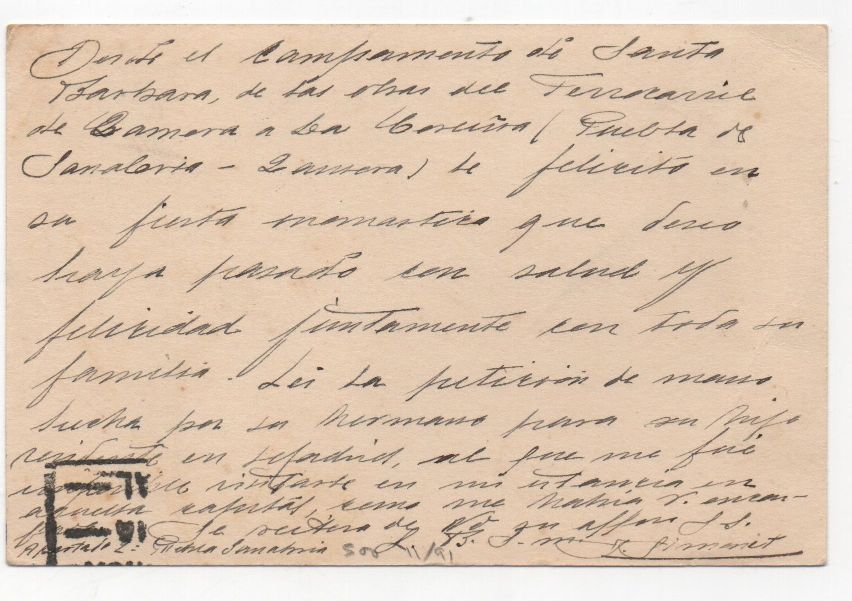 Desde el Campamento de Santa
Barbara, de las obras del Ferrocarril
de Zamora a La Coruña (Puebla de
Sanabria - Zamora) le felicito en
su fiesta onomastica que deseo
haya pasado con salud y
felicidad juntamente con toda su
familia. Lei la peticion de mano
hecha por su hermano para su hijo
residente en Madrid, al que me fué
imposible visitarle en mi estancia en
aquella capital, como me habia V. encar-
gado. Se reitera de Vd. su affmo S.S.
Apartado 2: Puebla Sanabria
Gimenez
500 11/91